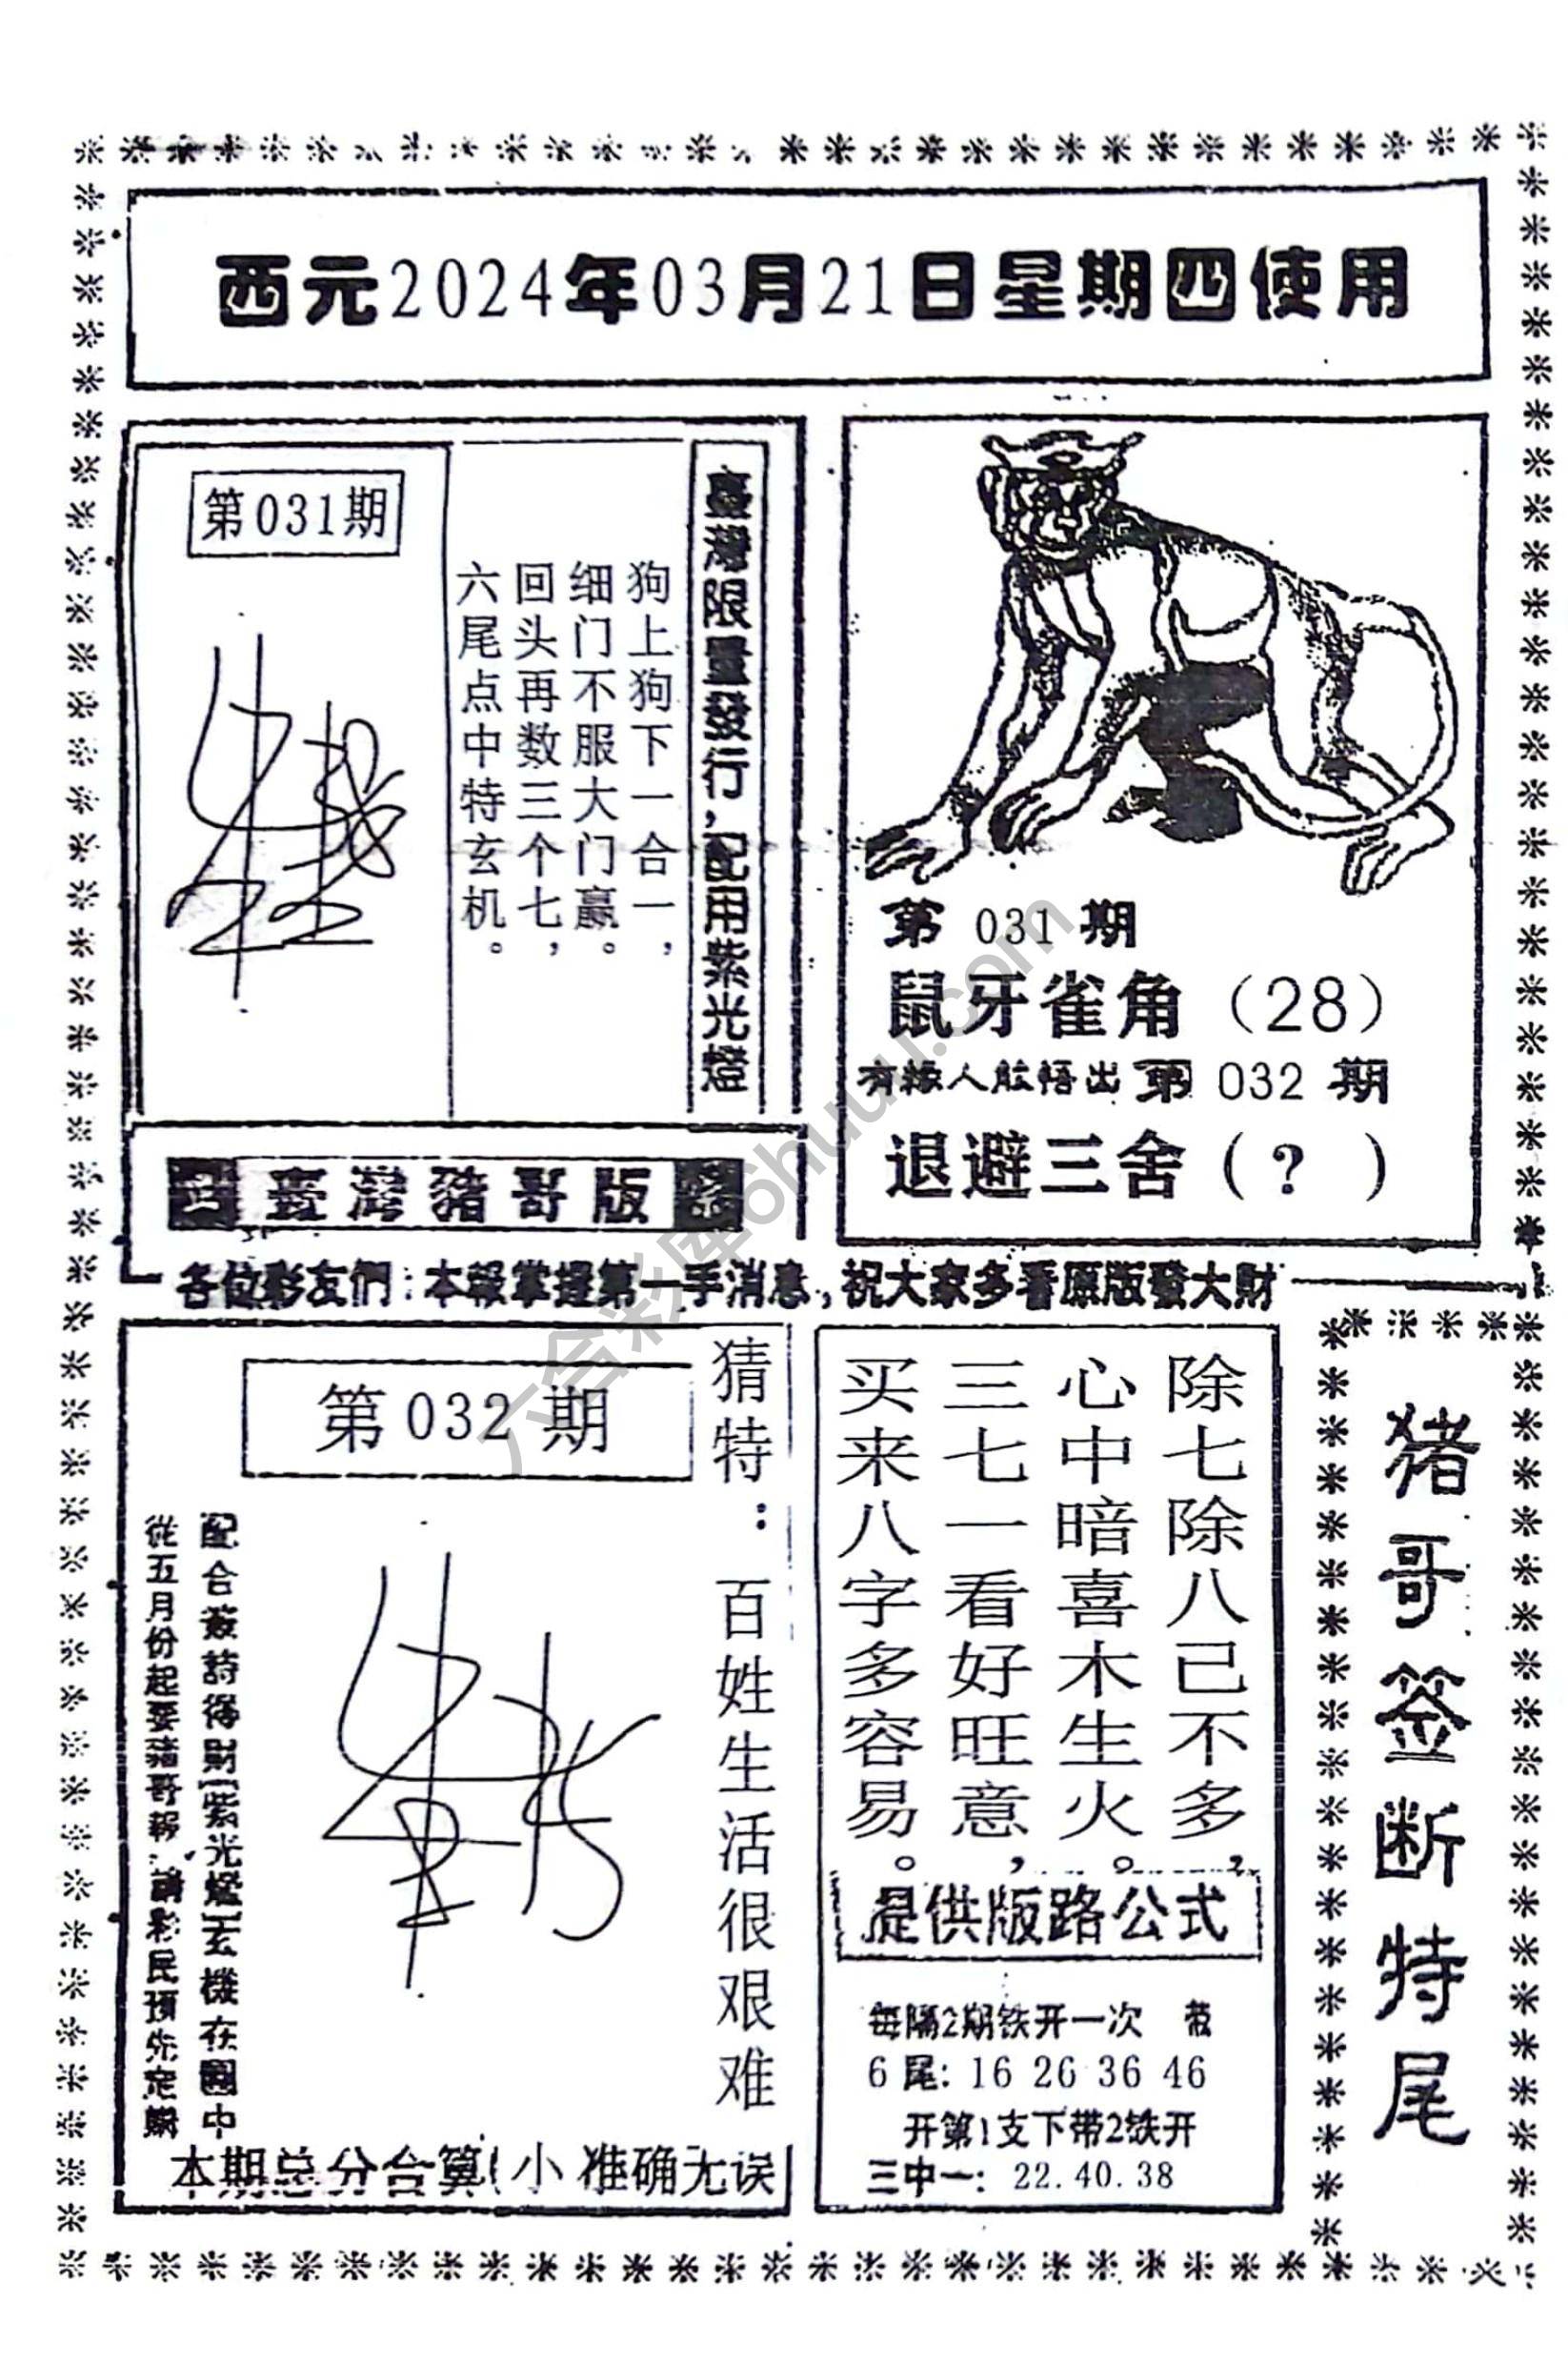 西元2024年03月21日星期四使用
第031期
臺灣限量發行,配用紫光燈
狗上狗下一合一,
细门不服大门赢。
回头再数三个七,
六尾点中特玄机。
第 031 期
鼠牙雀角（28）
有緣人能悟出 第 032 期
退避三舍（?）
正臺灣豬哥版
各位彩友們:本報掌握第一手消息,祝大家多看原版發大財
第032期
猜特：百姓生活很艰难
配合叢詩得財[紫光燈]玄機在圖中
從五月份起要豬哥報,請彩民預先定購
本期总分合算(小 准确无误
除七除八己不多,
心中暗喜木生火。
三七一看好旺意,
买来八字多容易。
提供版路公式
每隔2期铁开一次 带
6 尾: 16 26 36 46
开第1支下带2铁开
三中一: 22.40.38
猪哥签断特尾
六合彩库6huuu.com